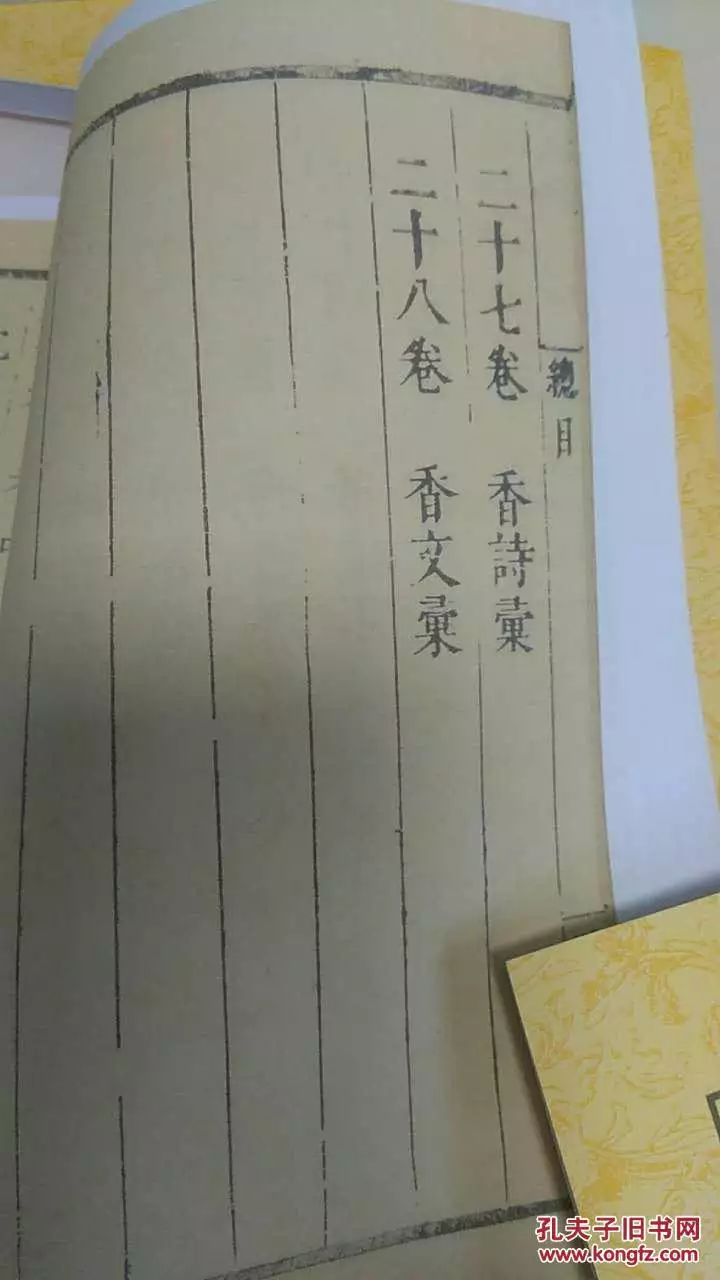 總目
二十七卷 香詩彙
二十八卷 香文彙
孔夫子旧书网
www.kongfz.com